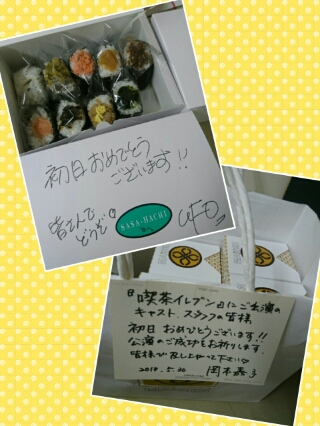 初日おめでとう
ございます!!
皆さんで
どうぞ
SASA-HACHI
『喫茶イレブン』にご出演の
キャスト、スタッフの皆様
初日 おめでとうございます!!
公演のご成功をお祈りします
皆様で召し上がって下さい
2018.5.30